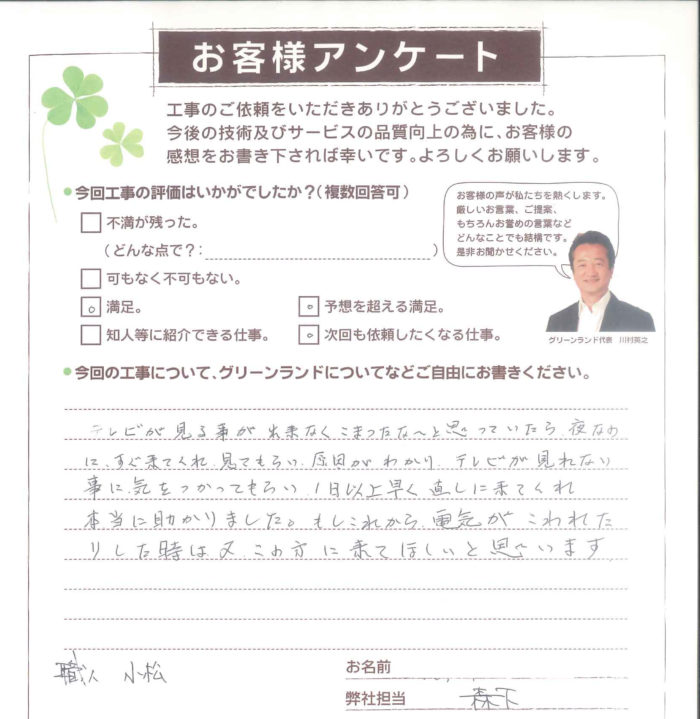 お客様アンケート
工事のご依頼をいただきありがとうございました。
今後の技術及びサービスの品質向上の為に、お客様の
感想をお書き下されば幸いです。よろしくお願いします。
●今回工事の評価はいかがでしたか？（複数回答可）
不満が残った。
（どんな点で？：　）
可もなく不可もない。
満足。
予想を超える満足。
知人等に紹介できる仕事。
次回も依頼したくなる仕事。
お客様の声が私たちを熱くします。
厳しいお言葉、ご提案、
もちろんお誉めの言葉など
どんなことでも結構です。
是非お聞かせください。
グリーンランド代表　川村英之
●今回の工事について、グリーンランドについてなどご自由にお書きください。
テレビが見る事が出来なくこまったな～と思っていたら、夜なの
に、すぐ来てくれ、見てもらい、原因がわかり、テレビが見れない
事に、気をつかってもらい、1日以上早く直しに来てくれ
本当に助かりました。もしこれから、電気がこわれた
りした時は又この方に来てほしいと思います
職人　小松
お名前
弊社担当　森下